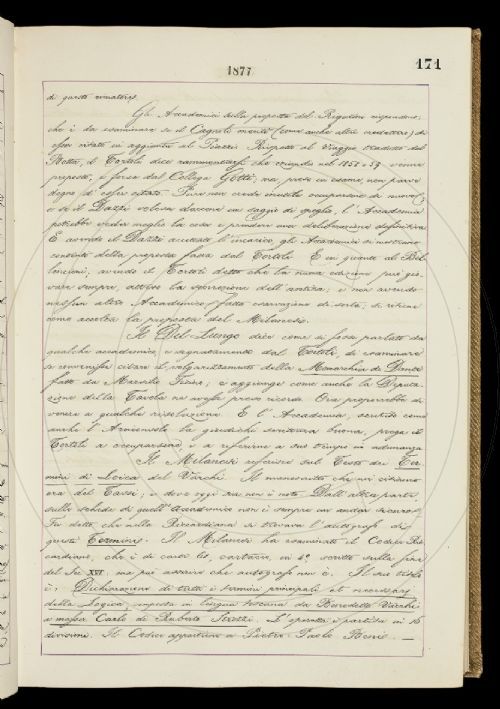 1877
171
di questo
Gli Accademici della proposta del Rigutini rispondono,
che è da esaminare se il Cagnoli merita (come anche altri crederono) di
esser citato in aggiunta al Piazzi. Rispetto al Viaggio tradotto dal
Botta, il Tortoli dice rammentarsi che quando nel 1858 e 59 venne
proposto, e forse dal Collega Gotti, ma preso in esame, non parve
degno di esser citato. Pure non crede inutile occuparsene di nuovo;
e se il Dazzi volesse darcene un saggio di spoglio, l'Accademia
potrebbe veder meglio la cosa e prendere una deliberazione definitiva
E avendo il Dazzi accettato l'incarico, gli Accademici si mostrano
contenti della proposta fatta dal Tortoli. E in quanto al
avendo il Tortoli detto che la nuova edizione può gio-
vare sempre, attesa la scorrezione dell'antica; e non avendo
nessun altro Accademico fatta osservazione di sorta, si ritiene
come accolta la proposta del Milanesi.
Il Del-Lungo dice come si fosse parlato da
qualche accademico e segnatamente dal Tortoli, di esaminare
se convenisse citare il volgarizzamento della Monarchia di Dante
fatto da Marsilio Ficino; e aggiunge come anche la Deputa-
zione della Tavola ne avesse preso ricordo. Ora proporrebbe di
venire a qualche risoluzione. E l'Accademia, sentito come
anche l'Arciconsolo la giudichi scrittura buona, prega il
Tortoli a occuparsene e a referirne a suo tempo in adunanza
Il Milanesi referisce sul Testo dei Ter-
mini di Loica del Varchi. Il manoscritto che noi citiamo
era del Tassi; e dove oggi sia non è noto. Dall'altra parte,
sulle schede di quell'Accademico non è sempre un andar sicuro.
Fu detto che nella Riccardiana si trovava l'autografo di
questi Termini. Il Milanesi ha esaminato il Codice Ric-
cardiano, che è di carte 60, cartaceo, in 4º scritto sulla fine
del Sec XVI; ma può asserire che autografo non è. Il suo titolo
è: Dichiarazione di tutti i termini principali et necessarj
della Logica, composta in lingua toscana da Benedetto Varchi
a messer Carlo di Ruberto Strozzi. L'operetta è partita in 16
divisioni. Il Codice appartenne a Pietro Paolo Benis. —